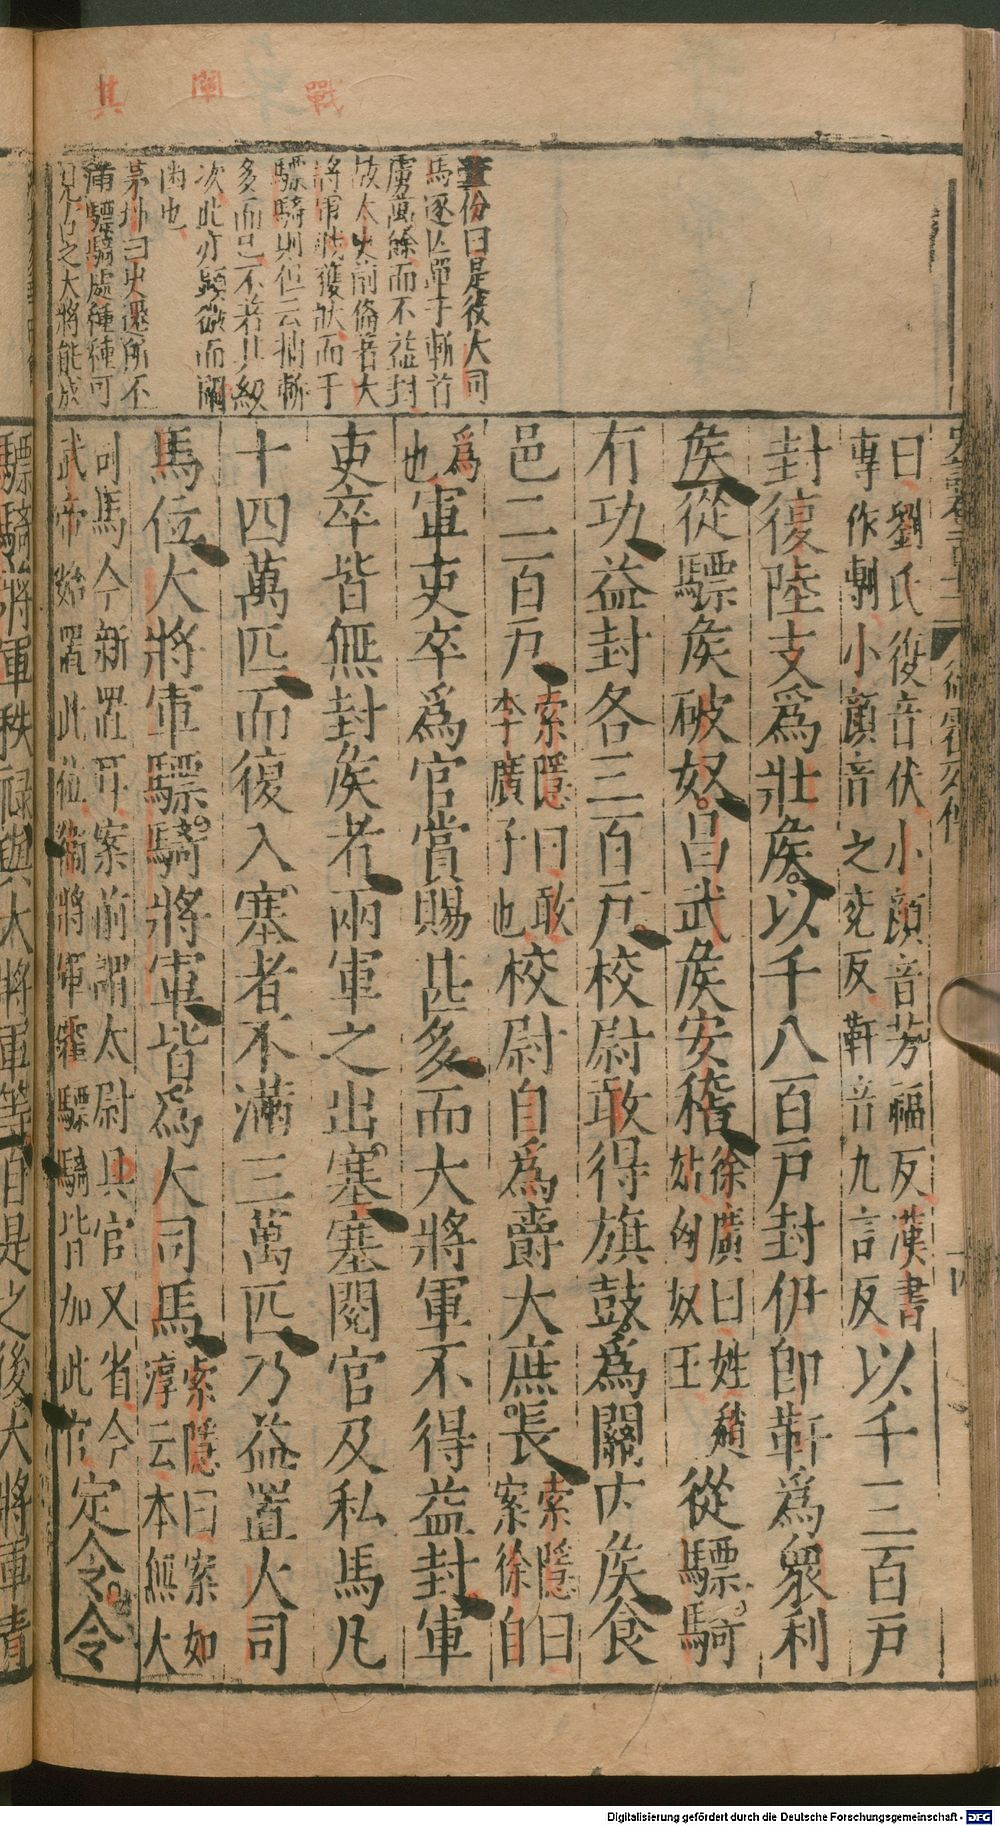 戰
闡
其
董份曰是後大司
馬逐匹單于斬首
虜萬餘而不益封
故太史前倫著大
將軍戰獲狀而于
驃騎則但云捕斬
多而已不若其級
次此亦顯微而闡
幽也
茅坤曰史遷所不
滿驃騎處種種可
見古之大將能成
曰劉氏復音伏小顏音芳福反漢書
專作剸小顏音之兗反靬音九言反
以千三百戶
封復陸支爲壯侯以千八百戶封伊卽靬爲衆利
侯從驃侯破奴昌武侯安稽
徐廣曰姓趙
姑匈奴王
從驃騎
有功益封各三百戶校尉敢得旗鼓爲關內侯食
邑二百戶
索隱曰敢
李廣子也
校尉自爲爵大庶長
索隱曰
案徐自
爲
也
軍吏卒爲官賞賜甚多而大將軍不得益封軍
吏卒皆無封侯者兩軍之出塞塞閱官及私馬凡
十四萬匹而復入塞者不滿三萬匹乃益置大司
馬位大將軍驃騎將軍皆爲大司馬
索隱曰案如
淳云本無大
司馬今新置耳案前謂太尉具官又省今
武帝始置此位衛將軍霍驃騎皆加此官
定令令
驃騎將軍秩祿與大將軍等自是之後大將軍青
Digitalisierung gefördert durch die Deutsche Forschungsgemeinschaft - DFG